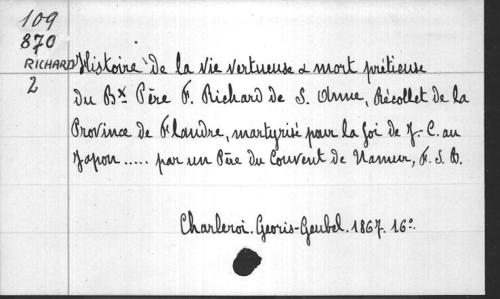 109
870
RICHARD
2
Histoire de la vie vertueuse & mort prétieuse
du Bx Père F. Richard de S. Anne, Récollet de la
Province de Flandre, martyrisé pour la foi de J.-C. au
Japon ..... par un Père du Couvent de Namur, F. S. B.
Charleroi. Georis-Geubel. 1867. 16º.